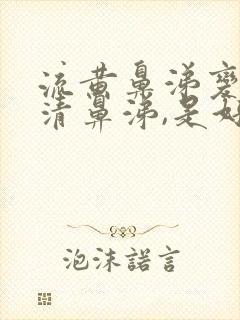 流黄鼻涕变
清鼻涕,是好
泡沫諾言